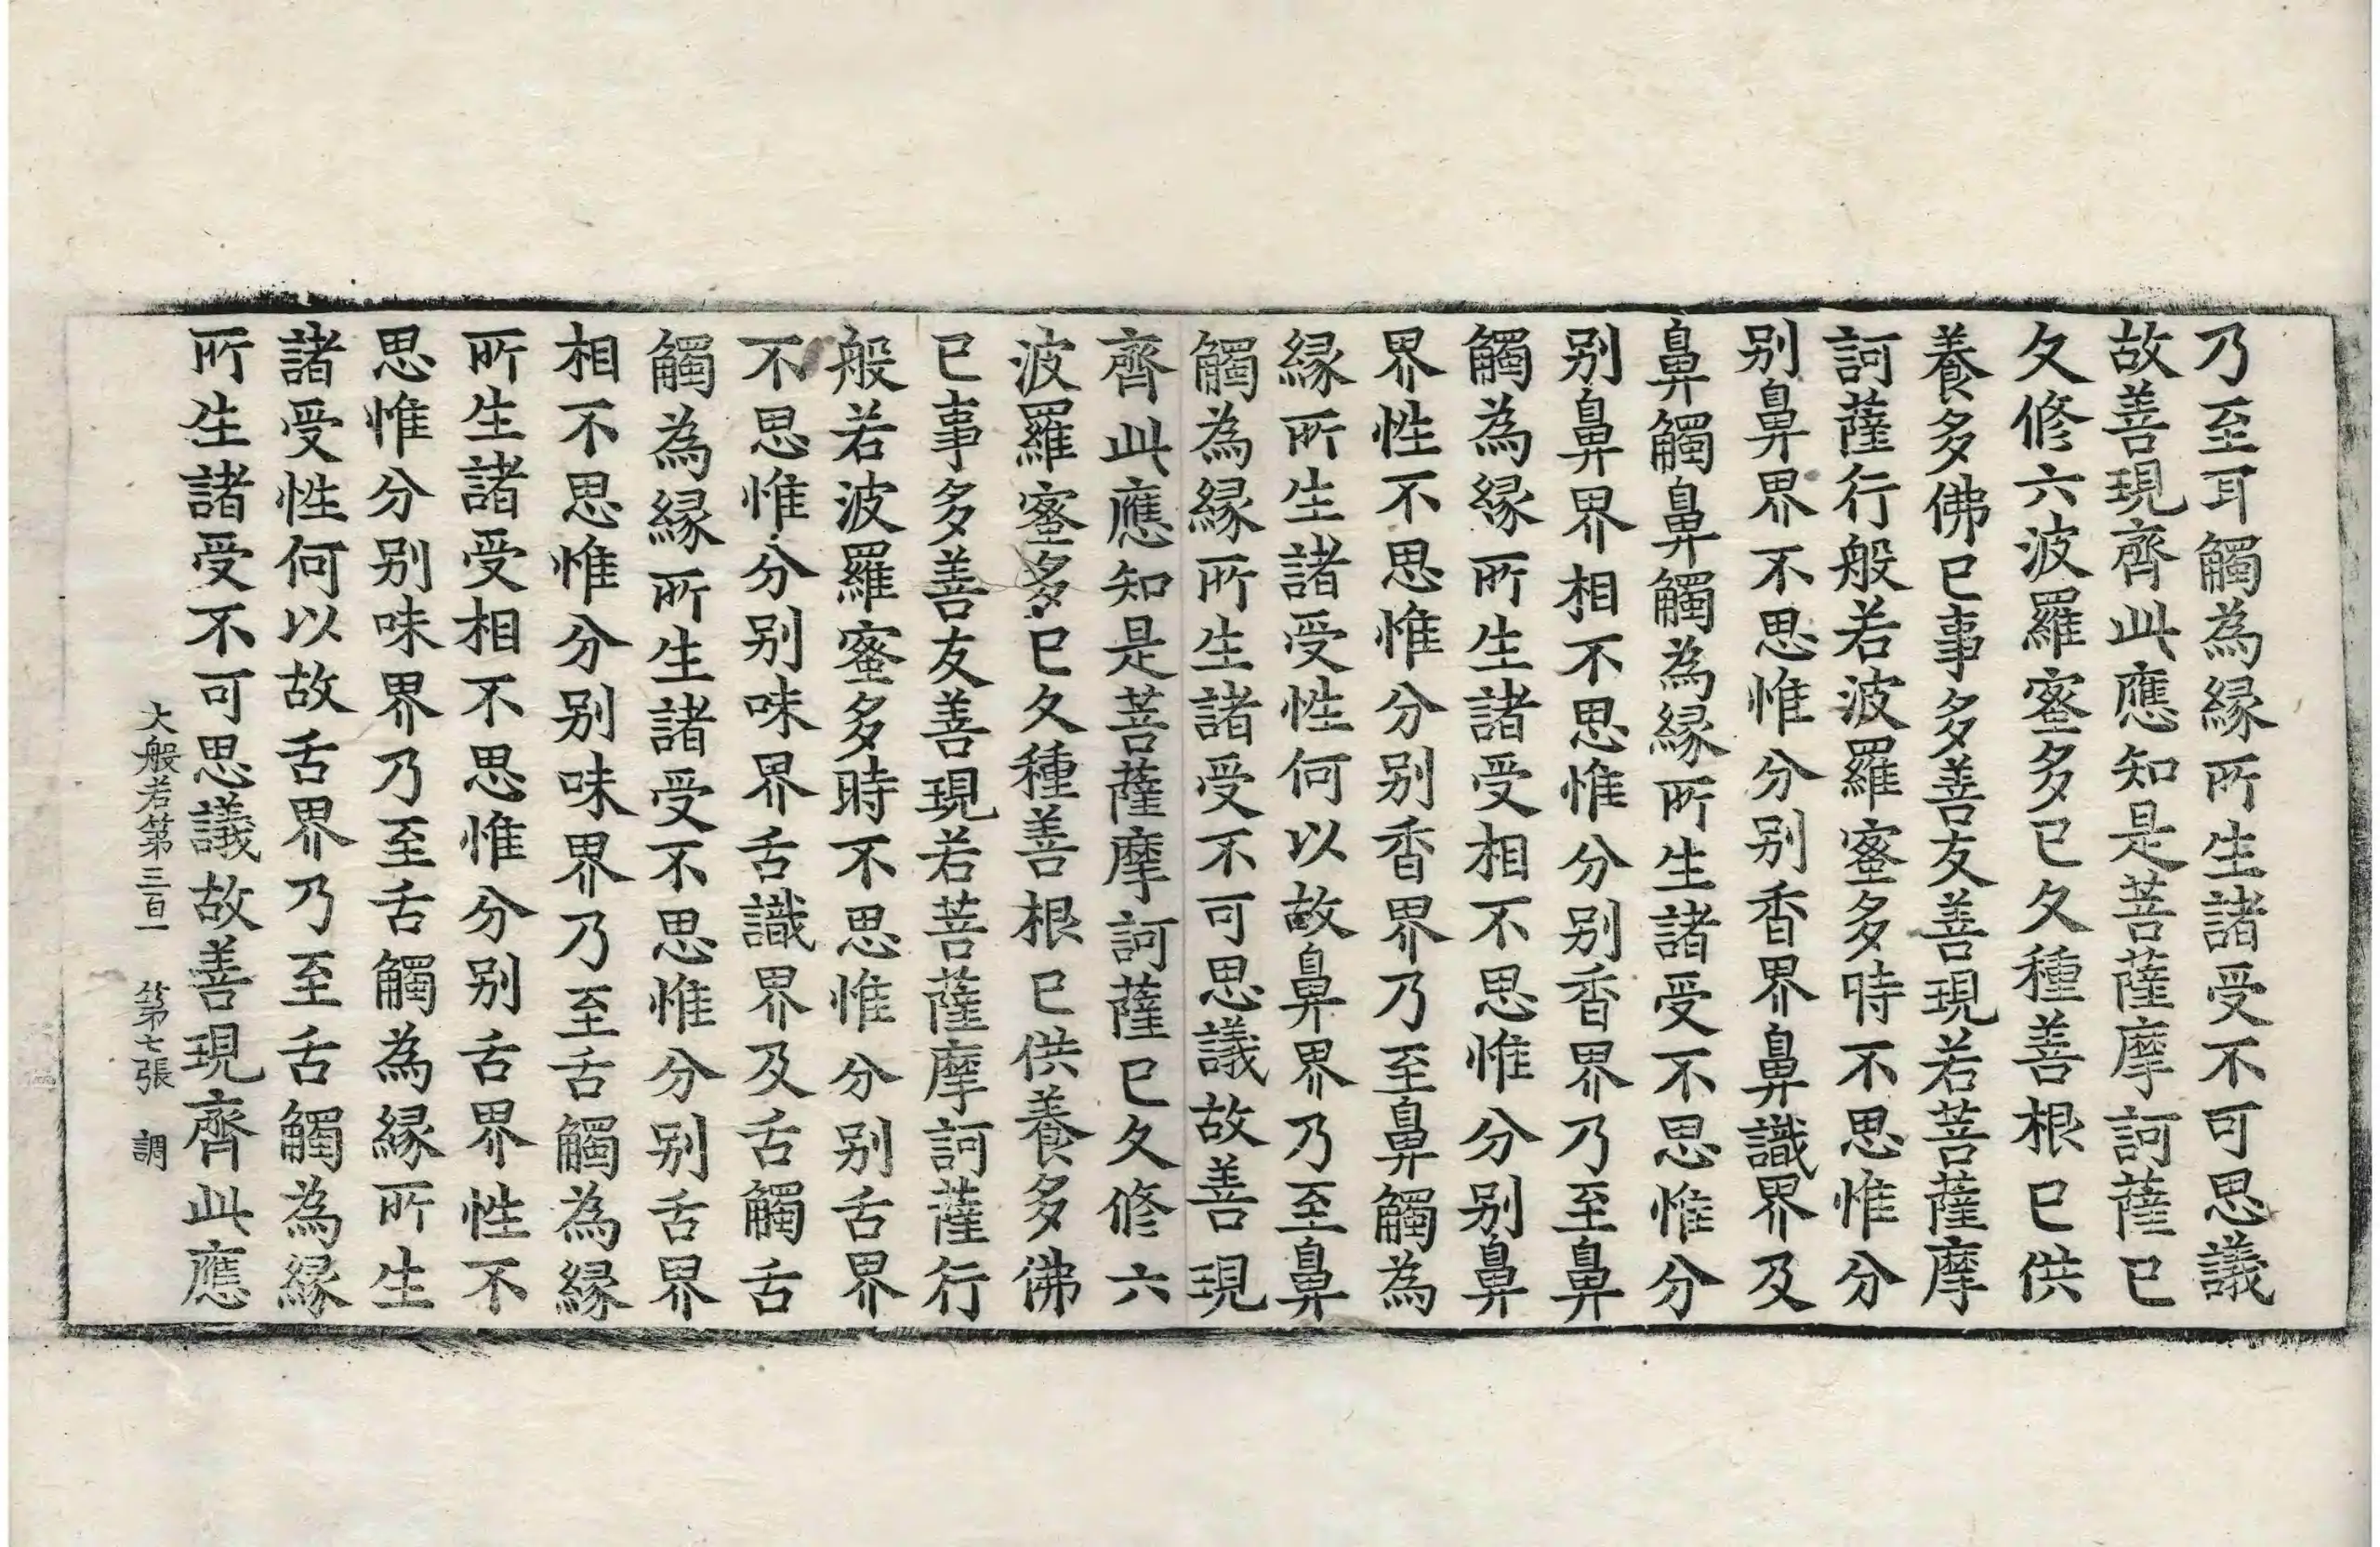 乃至耳觸為縁所生諸受不可思議
故善現齊此應知是菩薩摩訶薩已
久修六波羅蜜多已久種善根已供
養多佛已事多善友善現若菩薩摩
訶薩行般若波羅蜜多時不思惟分
别鼻界不思惟分别香界鼻識界及
鼻觸鼻觸為縁所生諸受不思惟分
别鼻界相不思惟分别香界乃至鼻
觸為縁所生諸受相不思惟分别鼻
界性不思惟分别香界乃至鼻觸為
縁所生諸受性何以故鼻界乃至鼻
觸為縁所生諸受不可思議故善現
齊此應知是菩薩摩訶薩已久修六
波羅蜜多已久種善根已供養多佛
已事多善友善現若菩薩摩訶薩行
般若波羅蜜多時不思惟分别舌界
不思惟分别味界舌識界及舌觸舌
觸為縁所生諸受不思惟分别舌界
相不思惟分别味界乃至舌觸為縁
所生諸受相不思惟分别舌界性不
思惟分别味界乃至舌觸為縁所生
諸受性何以故舌界乃至舌觸為縁
所生諸受不可思議故善現齊此應
大般若第三百一 第七張 調